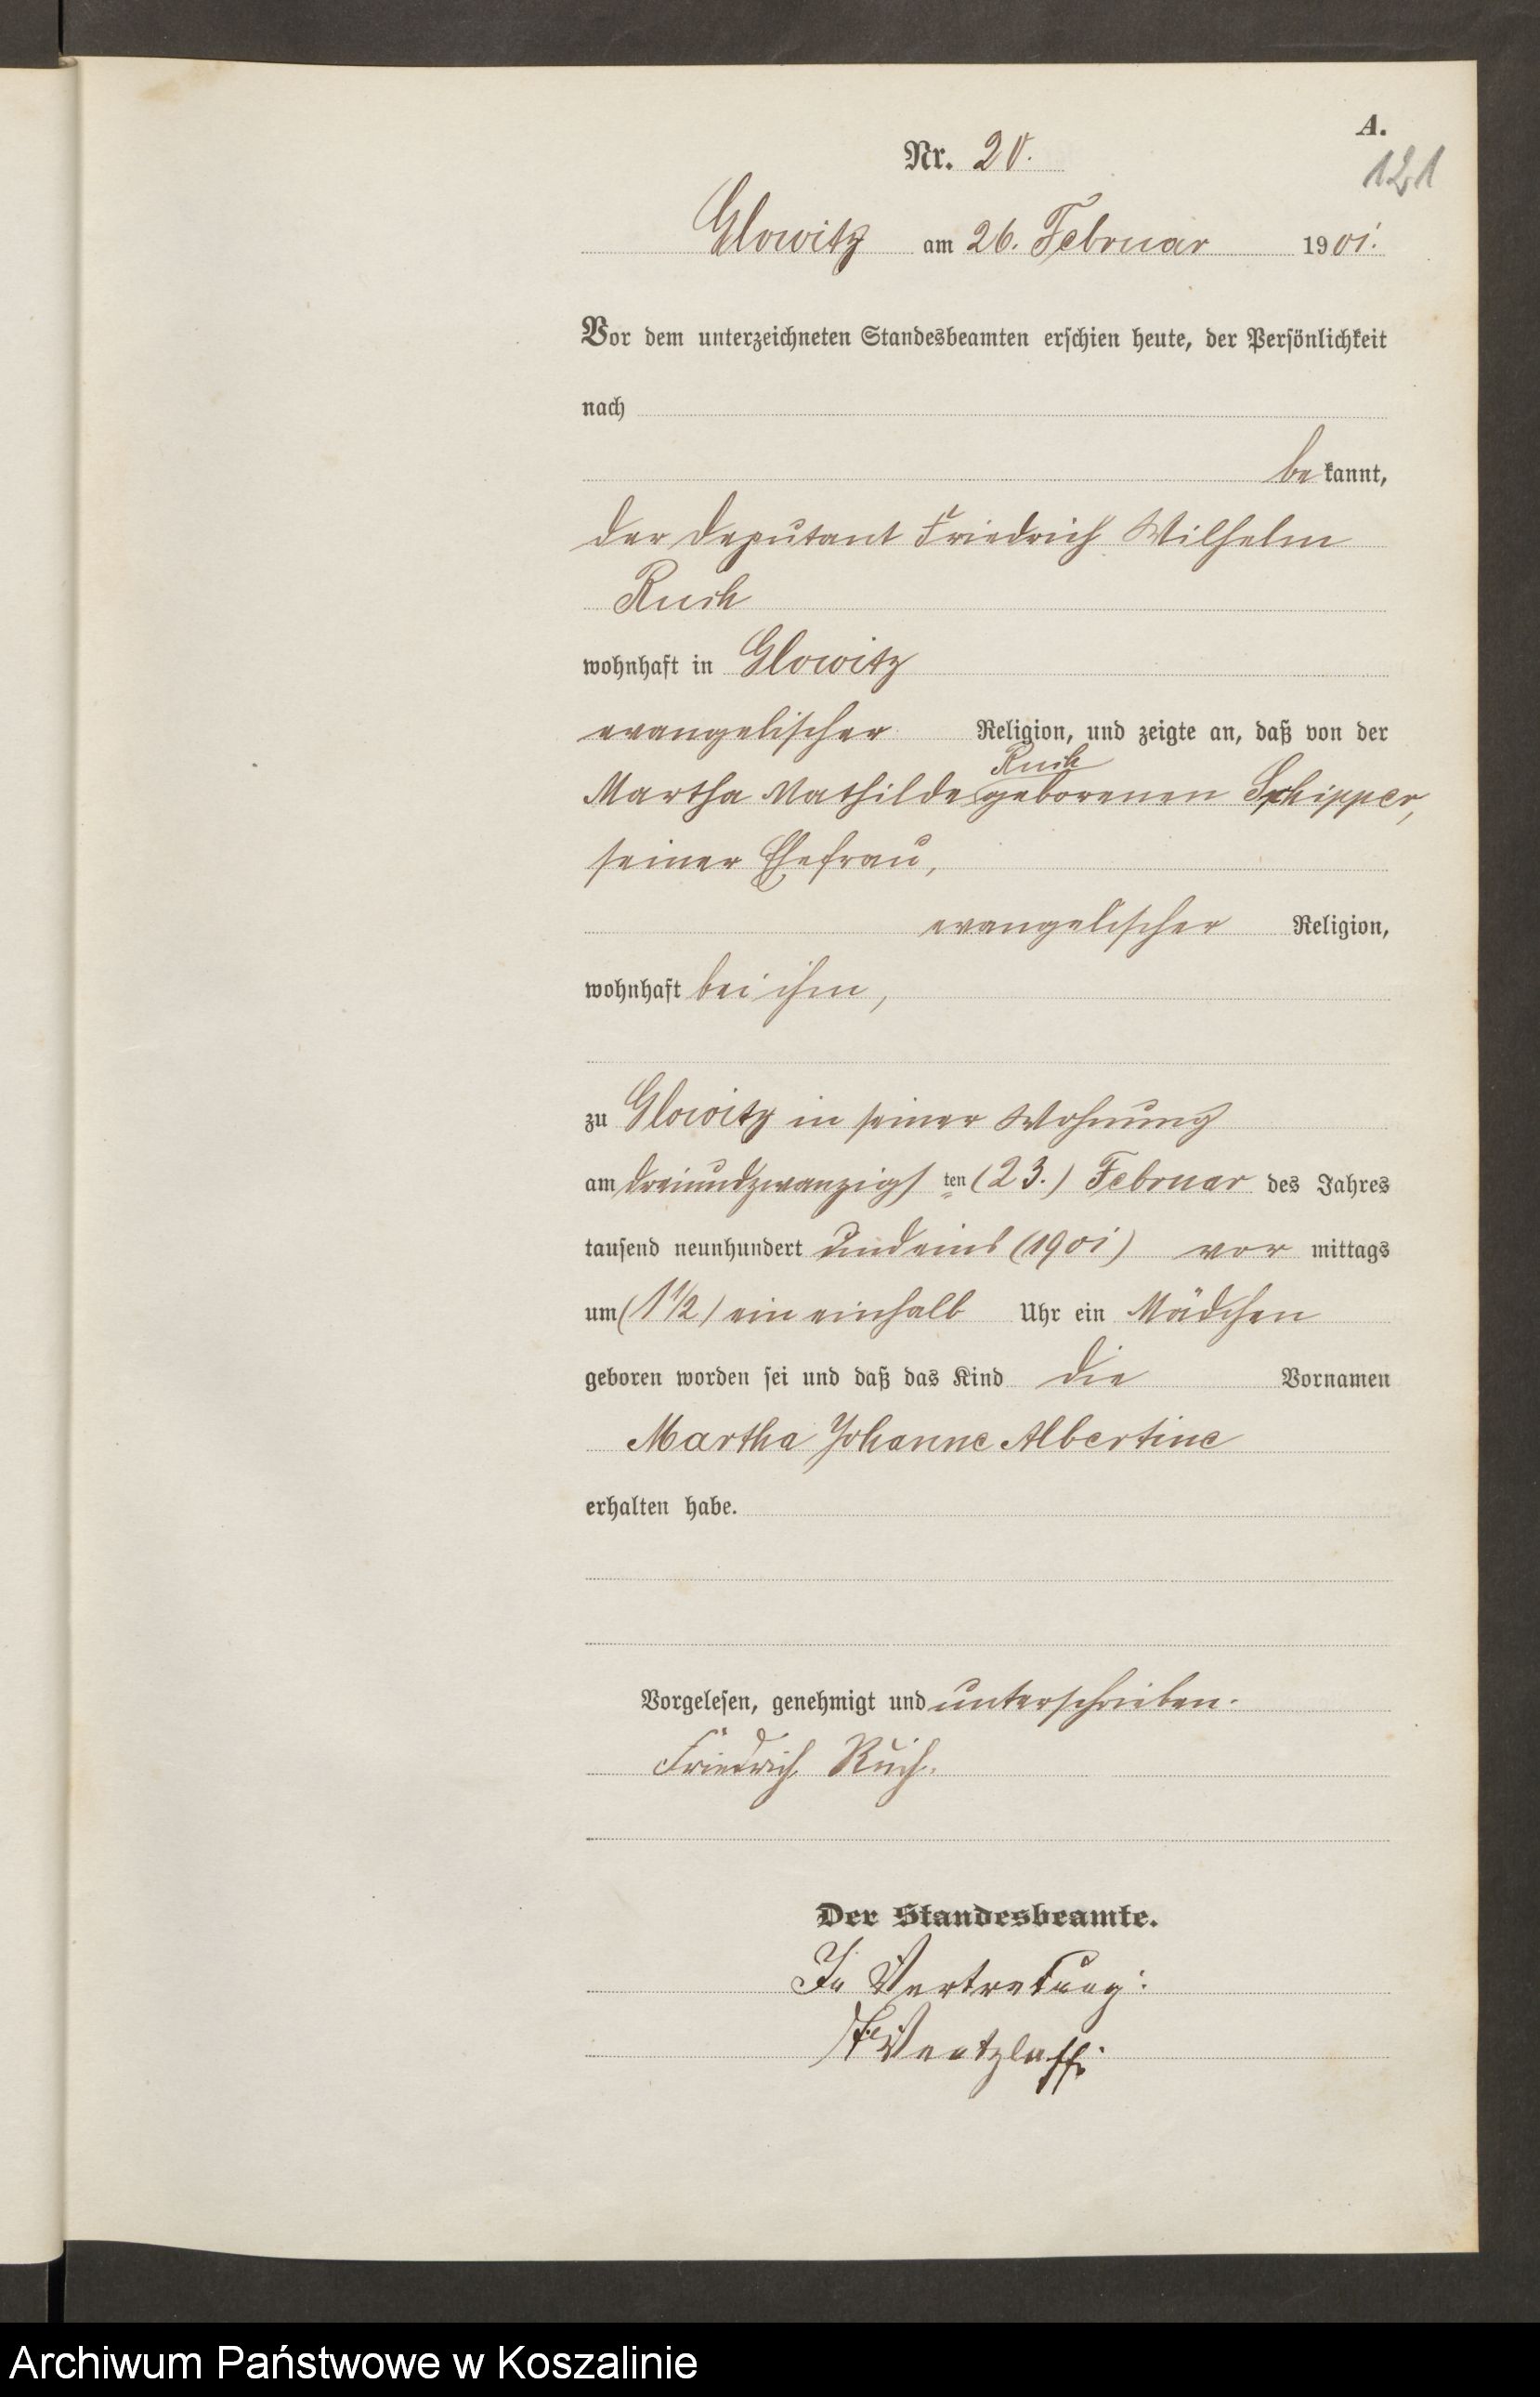 A.
121
Nr. 20.
Glowitz am 26. Februar 1901.
Vor dem unterzeichneten Standesbeamten erschien heute, der Persönlichkeit
nach
be kannt,
der Deputant Friedrich Wilhelm
Ruch
wohnhaft in Glowitz
evangelischer Religion, und zeigte an, daß von der
Ruch
Martha Mathilde geborenen Schipper,
seiner Ehefrau,
evangelischer Religion,
wohnhaft bei ihm,
zu Glowitz in seiner Wohnung
am dreiundzwanzigs ten (23.) Februar des Jahres
tausend neunhundert und eins (1901) vor mittags
um (1 1/2) ein einhalb Uhr ein Mädchen
geboren worden sei und daß das Kind die Vornamen
Martha Johanne Albertine
erhalten habe.
Vorgelesen, genehmigt und unterschrieben.
Friedrich Ruch.
Der Standesbeamte.
In Vertretung:
Wentzlaff.
Archiwum Państwowe w Koszalinie